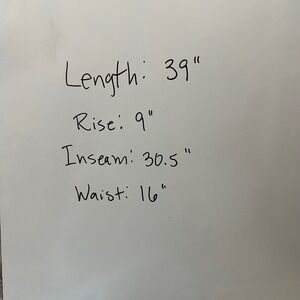 Length: 39"
Rise: 9"
Inseam: 30.5"
Waist: 16"